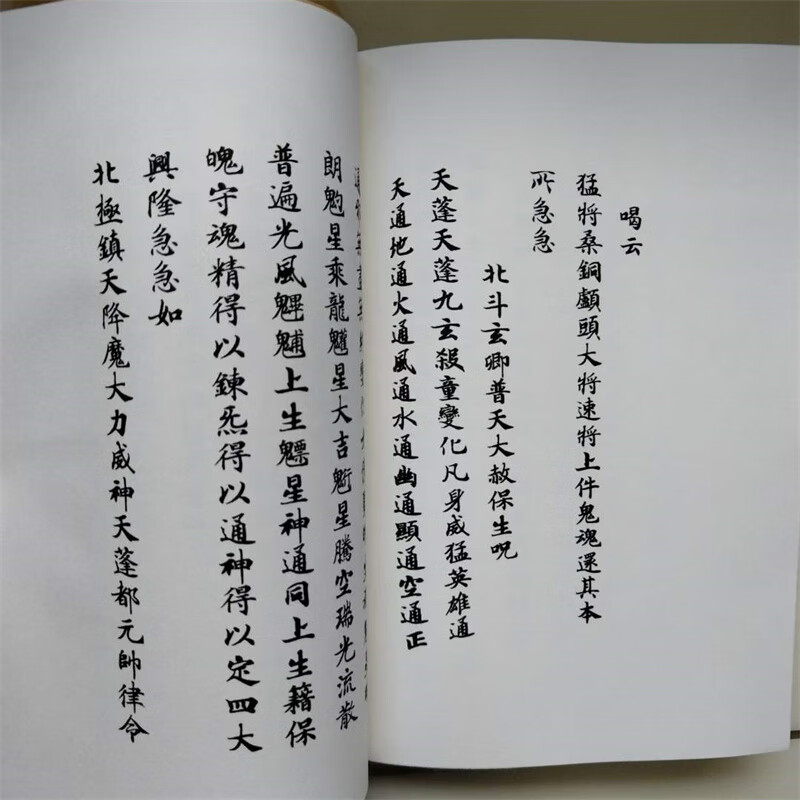 喝云
猛將桑銅顱頭大將速將上件鬼魂還其本
所急急
北斗玄卿普天大赦保生呪
天蓬天蓬九玄殺童變化凡身威猛英雄通
天通地通火通風通水通幽通顯通空通正
朗魁星乘龍魓星大吉魒星騰空瑞光流散
普遍光風魓魒上生魒星神通同上生籍保
魄守魂精得以鍊炁得以通神得以定四大
興隆急急如
北極鎮天降魔大力威神天蓬都元帥律令